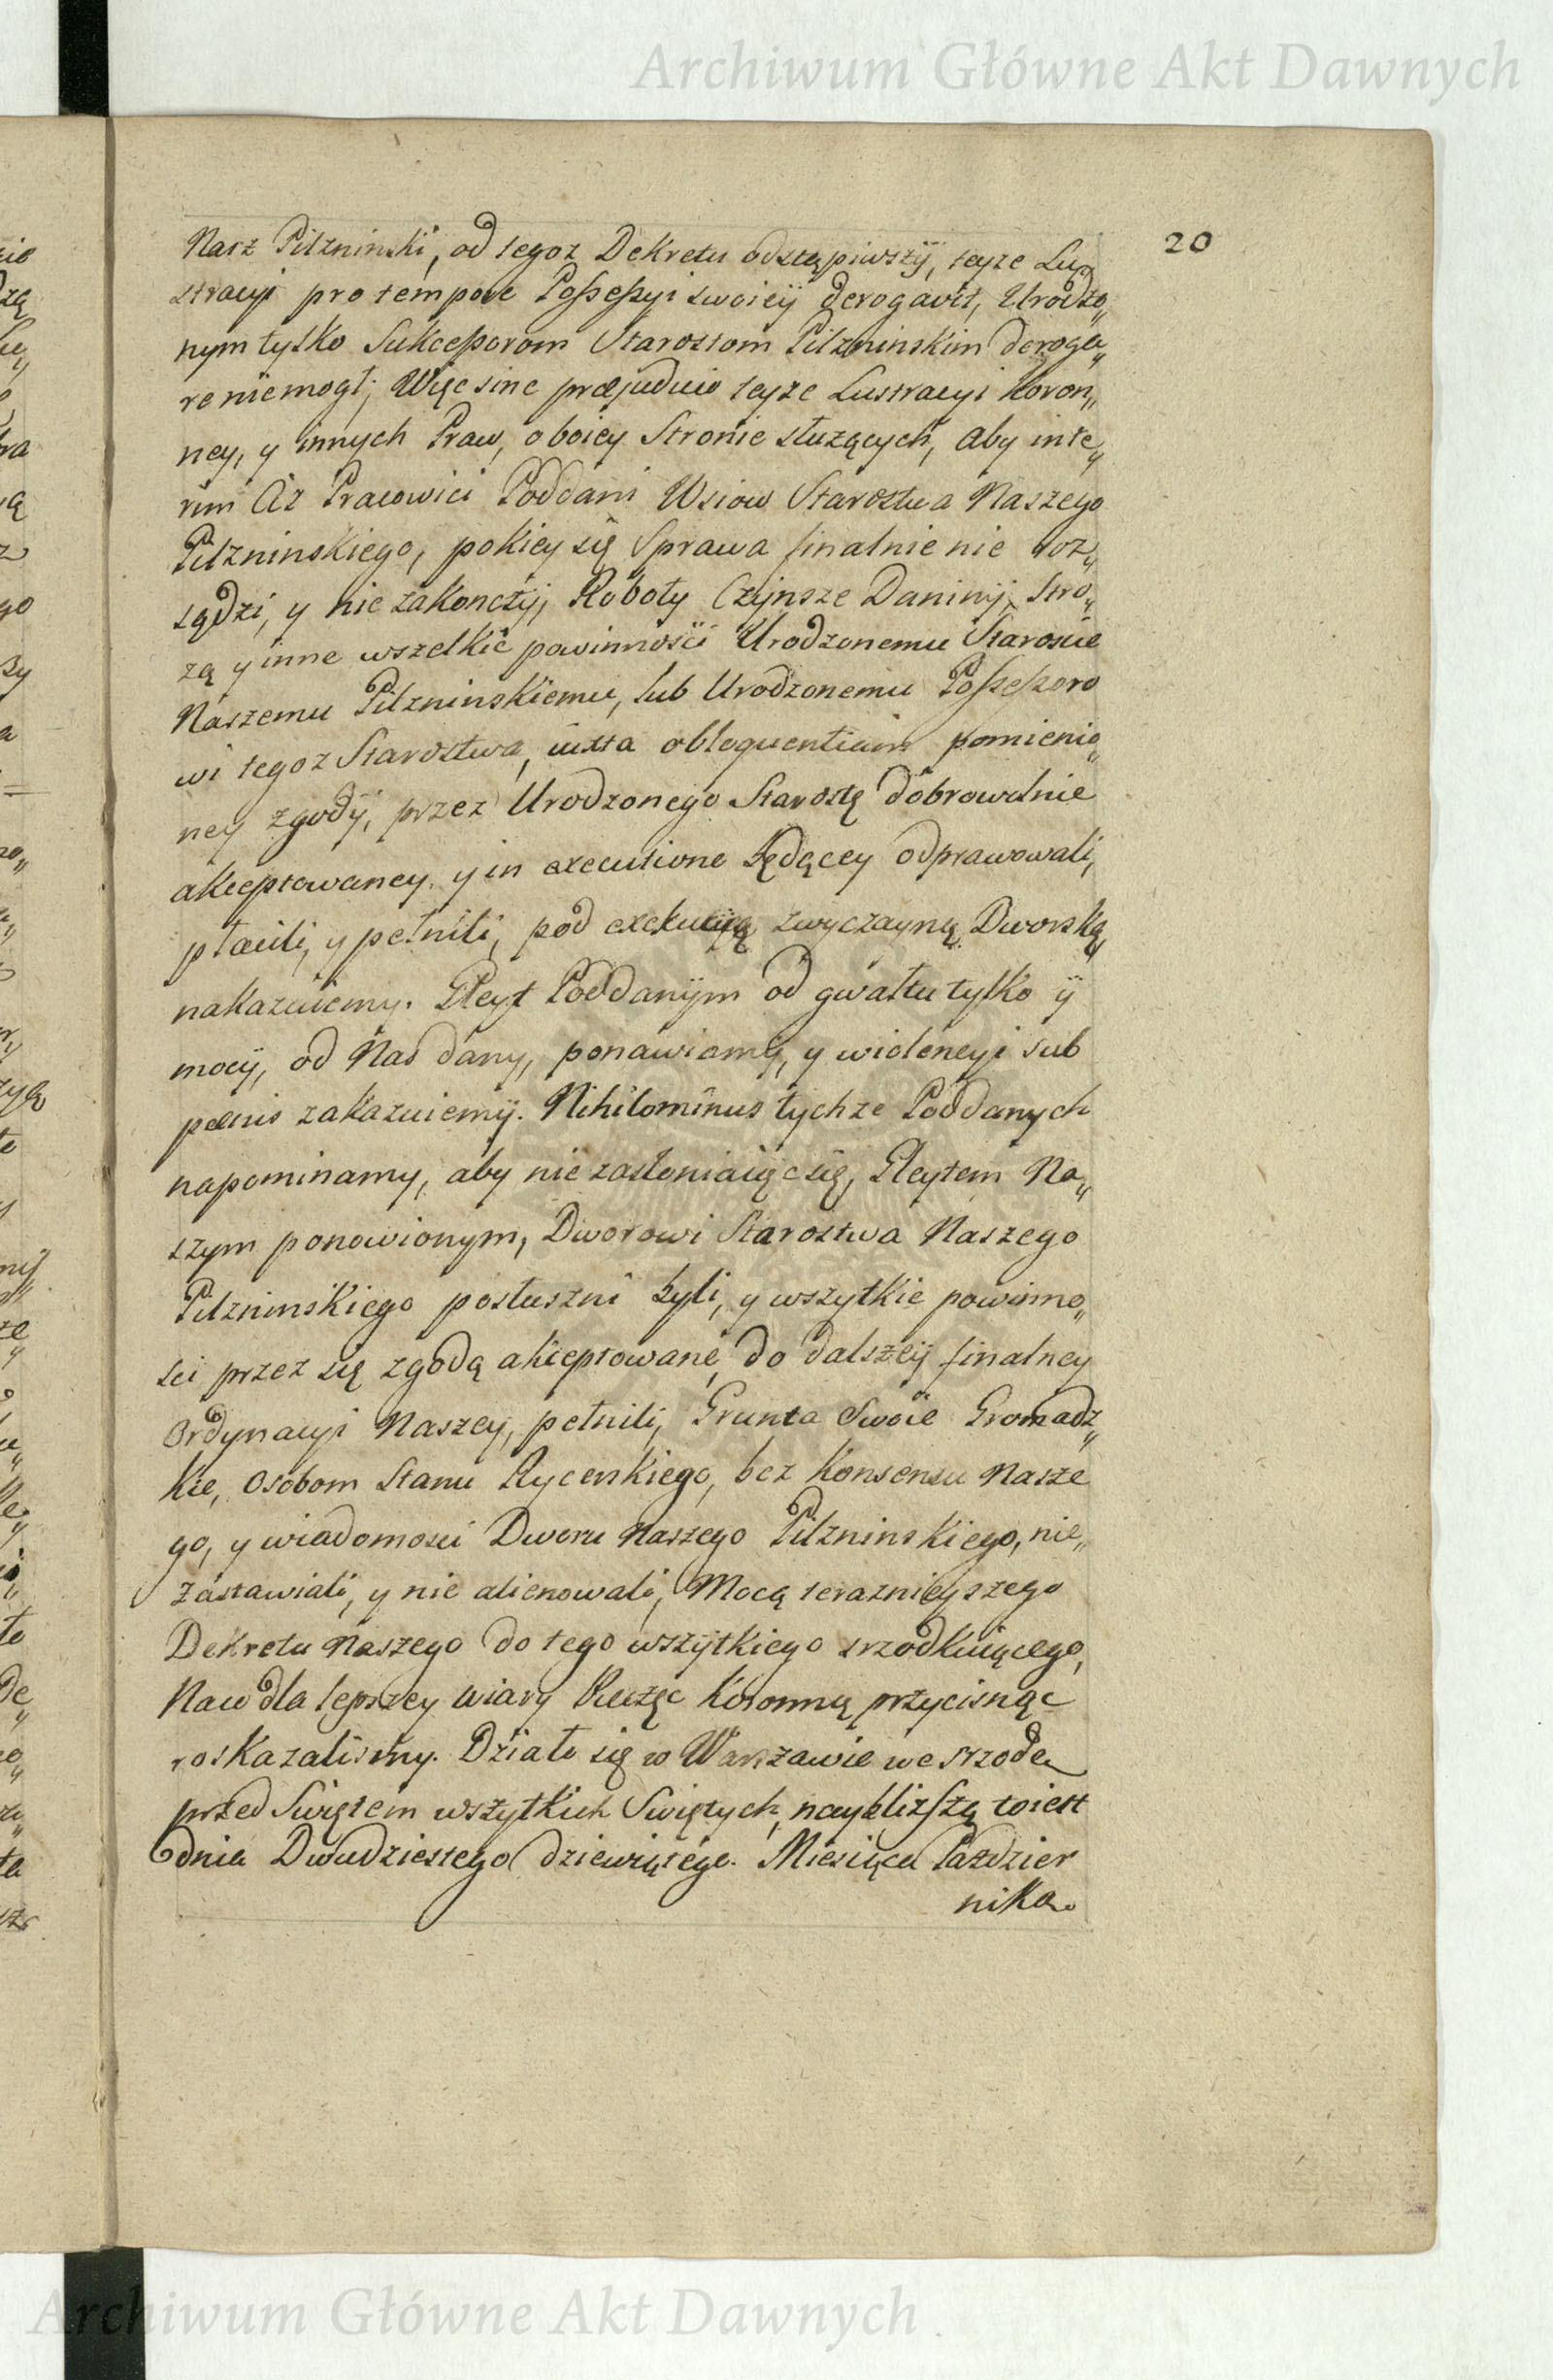 Archiwum Główne Akt Dawnych
20
Nasz Pilzninski, od tegoz Dekretu odstąpiwszÿ, teyze Lu„
stracyi pro tempore Possessyi swoieÿ derogavit, Urodzo„
nym tylko Sukcessorom Starostom Pilzninskim deroga„
re niemogł; Więc sine præjudicio teyze Lustracyi Koron„
ney, y innych Praw, oboiey Stronie słuzących, aby inte„
rim Ciz Pracowici Poddani Wsiow Starostwa Naszego
Pilzninskiego, pokiey się Sprawa finalnie nie roz„
sądzi, y nie zakonczÿ, Roboty Czÿnsze Daninÿ, Stro„
zą y inne wszelkie powinnosci Urodzonemu Staroscie
Naszemu Pilzninskiemu, lub Urodzonemu Possessoro
wi tegoz Starostwa, iuxta obloquentiam pomienio„
ney zgodÿ, przez Urodzonego Starostę dobrowolnie
akceptowaney, y in executione będącey odprawowali,
płacili, y pełnili, pod exekucyą zwyczayną Dworską,
nakazuiemy. Gleyt Poddanÿm od gwałtu tylko ÿ
mocÿ, od Nas dany, ponawiamy, y wiolencyi sub
pœnis zakazuiemÿ. Nihilominus tychze Poddanych
napominamy, aby nie zasłoniaiąc się, Gleytem Na„
szym ponowionym, Dworowi Starostwa Naszego
Pilzninskiego posłuszni byli, y wszytkie powinno„
sci przez się zgodą akceptowane, do dalszeÿ finalney
Ordynacyi Naszey, pełnili, Grunta Swoie Gromadz„
kie, Osobom Stanu Rycerskiego, bez Konsensu Nasze
go, y wiadomosci Dworu Naszego Pilzninskiego, nie„
zastawiali, y nie alienowali, Mocą teraznieyszego
Dekretu Naszego do tego wszÿtkiego srzodkuiącego,
Na co dla lepszey wiary Pieczęc Koronną przycisnąc
roskazalismy. Działo się w Warszawie we srzodę
przed Swiętem wszytkich Swiętych, naybliższą to iest
dnia Dwudziestego dziewiątego. Miesiąca Pazdzier
nika.
Archiwum Główne Akt Dawnych